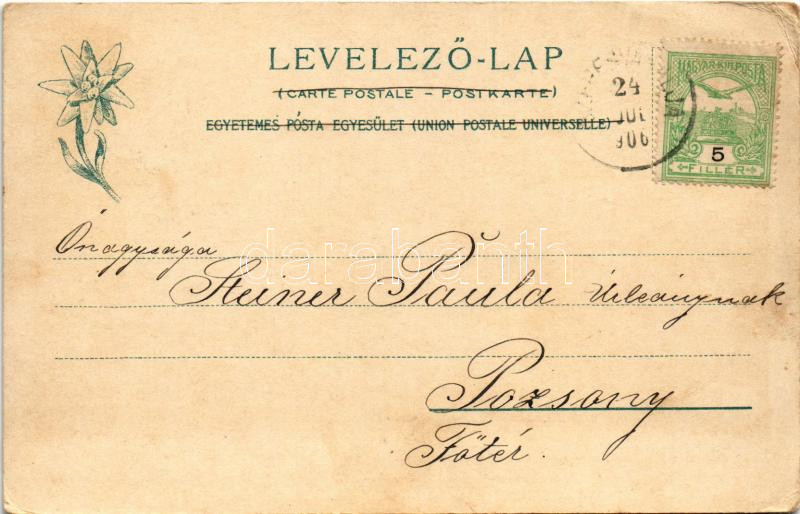 LEVELEZŐ-LAP
(CARTE POSTALE – POSTKARTE)
EGYETEMES PÓSTA EGYESÜLET (UNION POSTALE UNIVERSELLE)
24
906
MAGYAR·KIR·POSTA
5
FILLÉR
Őnagysága
Steiner Paula Úrleánynak
Pozsony
Főtér.
darabanth